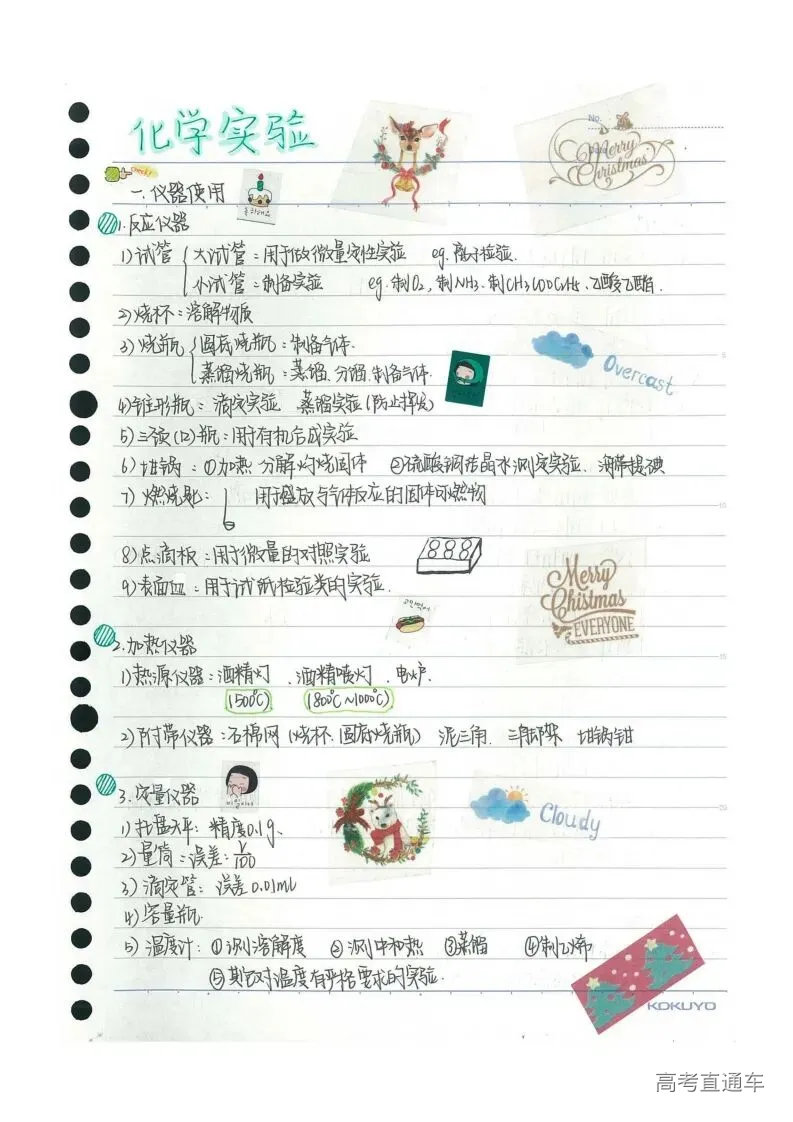 化学实验
No.
Merry
Christmas
check!
一.仪器使用
1.反应仪器
1)试管 大试管:用于做微量定性实验 eg.离子检验.
小试管:制备实验 eg.制O₂,制NH₃.制CH₃COOC₂H₅、乙酸乙酯.
2)烧杯:溶解物质
3)烧瓶 圆底烧瓶:制备气体.
蒸馏烧瓶:蒸馏、分馏、制备气体.
Overcast
4)锥形瓶:滴定实验 蒸馏实验(防止挥发)
5)三颈(口)瓶:用于有机合成实验
6)坩锅:①加热 分解 灼烧固体 ②硫酸铜结晶水测定实验、海带提碘
7)燃烧匙: 用于盛放与气体反应的固体可燃物
8)点滴板:用于微量的对照实验
9)表面皿:用于试纸检验类的实验.
Merry
Chistmas
EVERYONE
2.加热仪器
1)热源仪器:酒精灯、酒精喷灯、电炉.
(500℃) (800℃~1000℃)
2)附带仪器:石棉网(烧杯.圆底烧瓶) 泥三角. 三脚架 坩锅钳
3.定量仪器
Cloudy
1)托盘天平:精度0.1g、
2)量筒:误差:V/100
3)滴定管:误差0.01mL
4)容量瓶.
5)温度计:①测溶解度 ②测中和热 ③蒸馏 ④制乙烯
⑤其它对温度有严格要求的实验.
KOKUYO
高考直通车
5
10
15
20